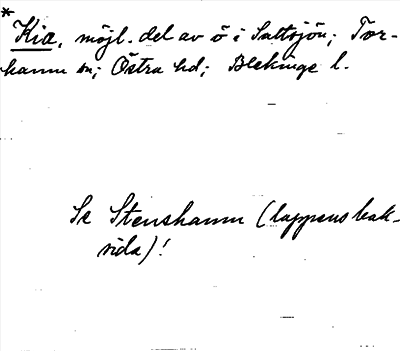 *
Kia, möjl. del av ö i Saltsjön; Tor-
hamn sn; Östra hd; Blekinge l.
Se Stenshamn (lappens bak-
sida)!